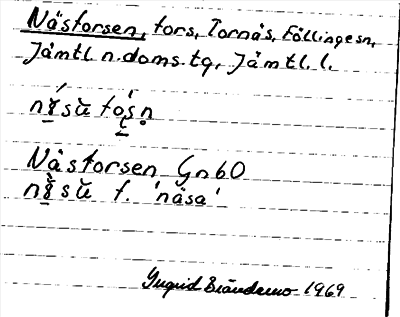 Näsforsen, fors, Tornäs, Föllinge sn,
Jämtl. n. doms. tg, Jämtl. l.
Näsforsen Gnb O
f. 'näsa'
Ingrid Brändemo 1969